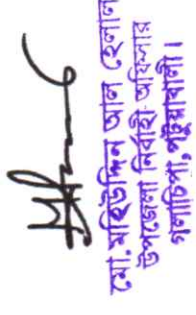 মো. মহিউদ্দিন আল হেলাল
উপজেলা নির্বাহী অফিসার
গলাচিপা, পটুয়াখালী।